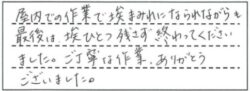 屋内での作業で埃まみれになられながらも
最後は、埃ひとつ残さず終わってください
ました。ご丁寧な作業、ありがとう
ございました。